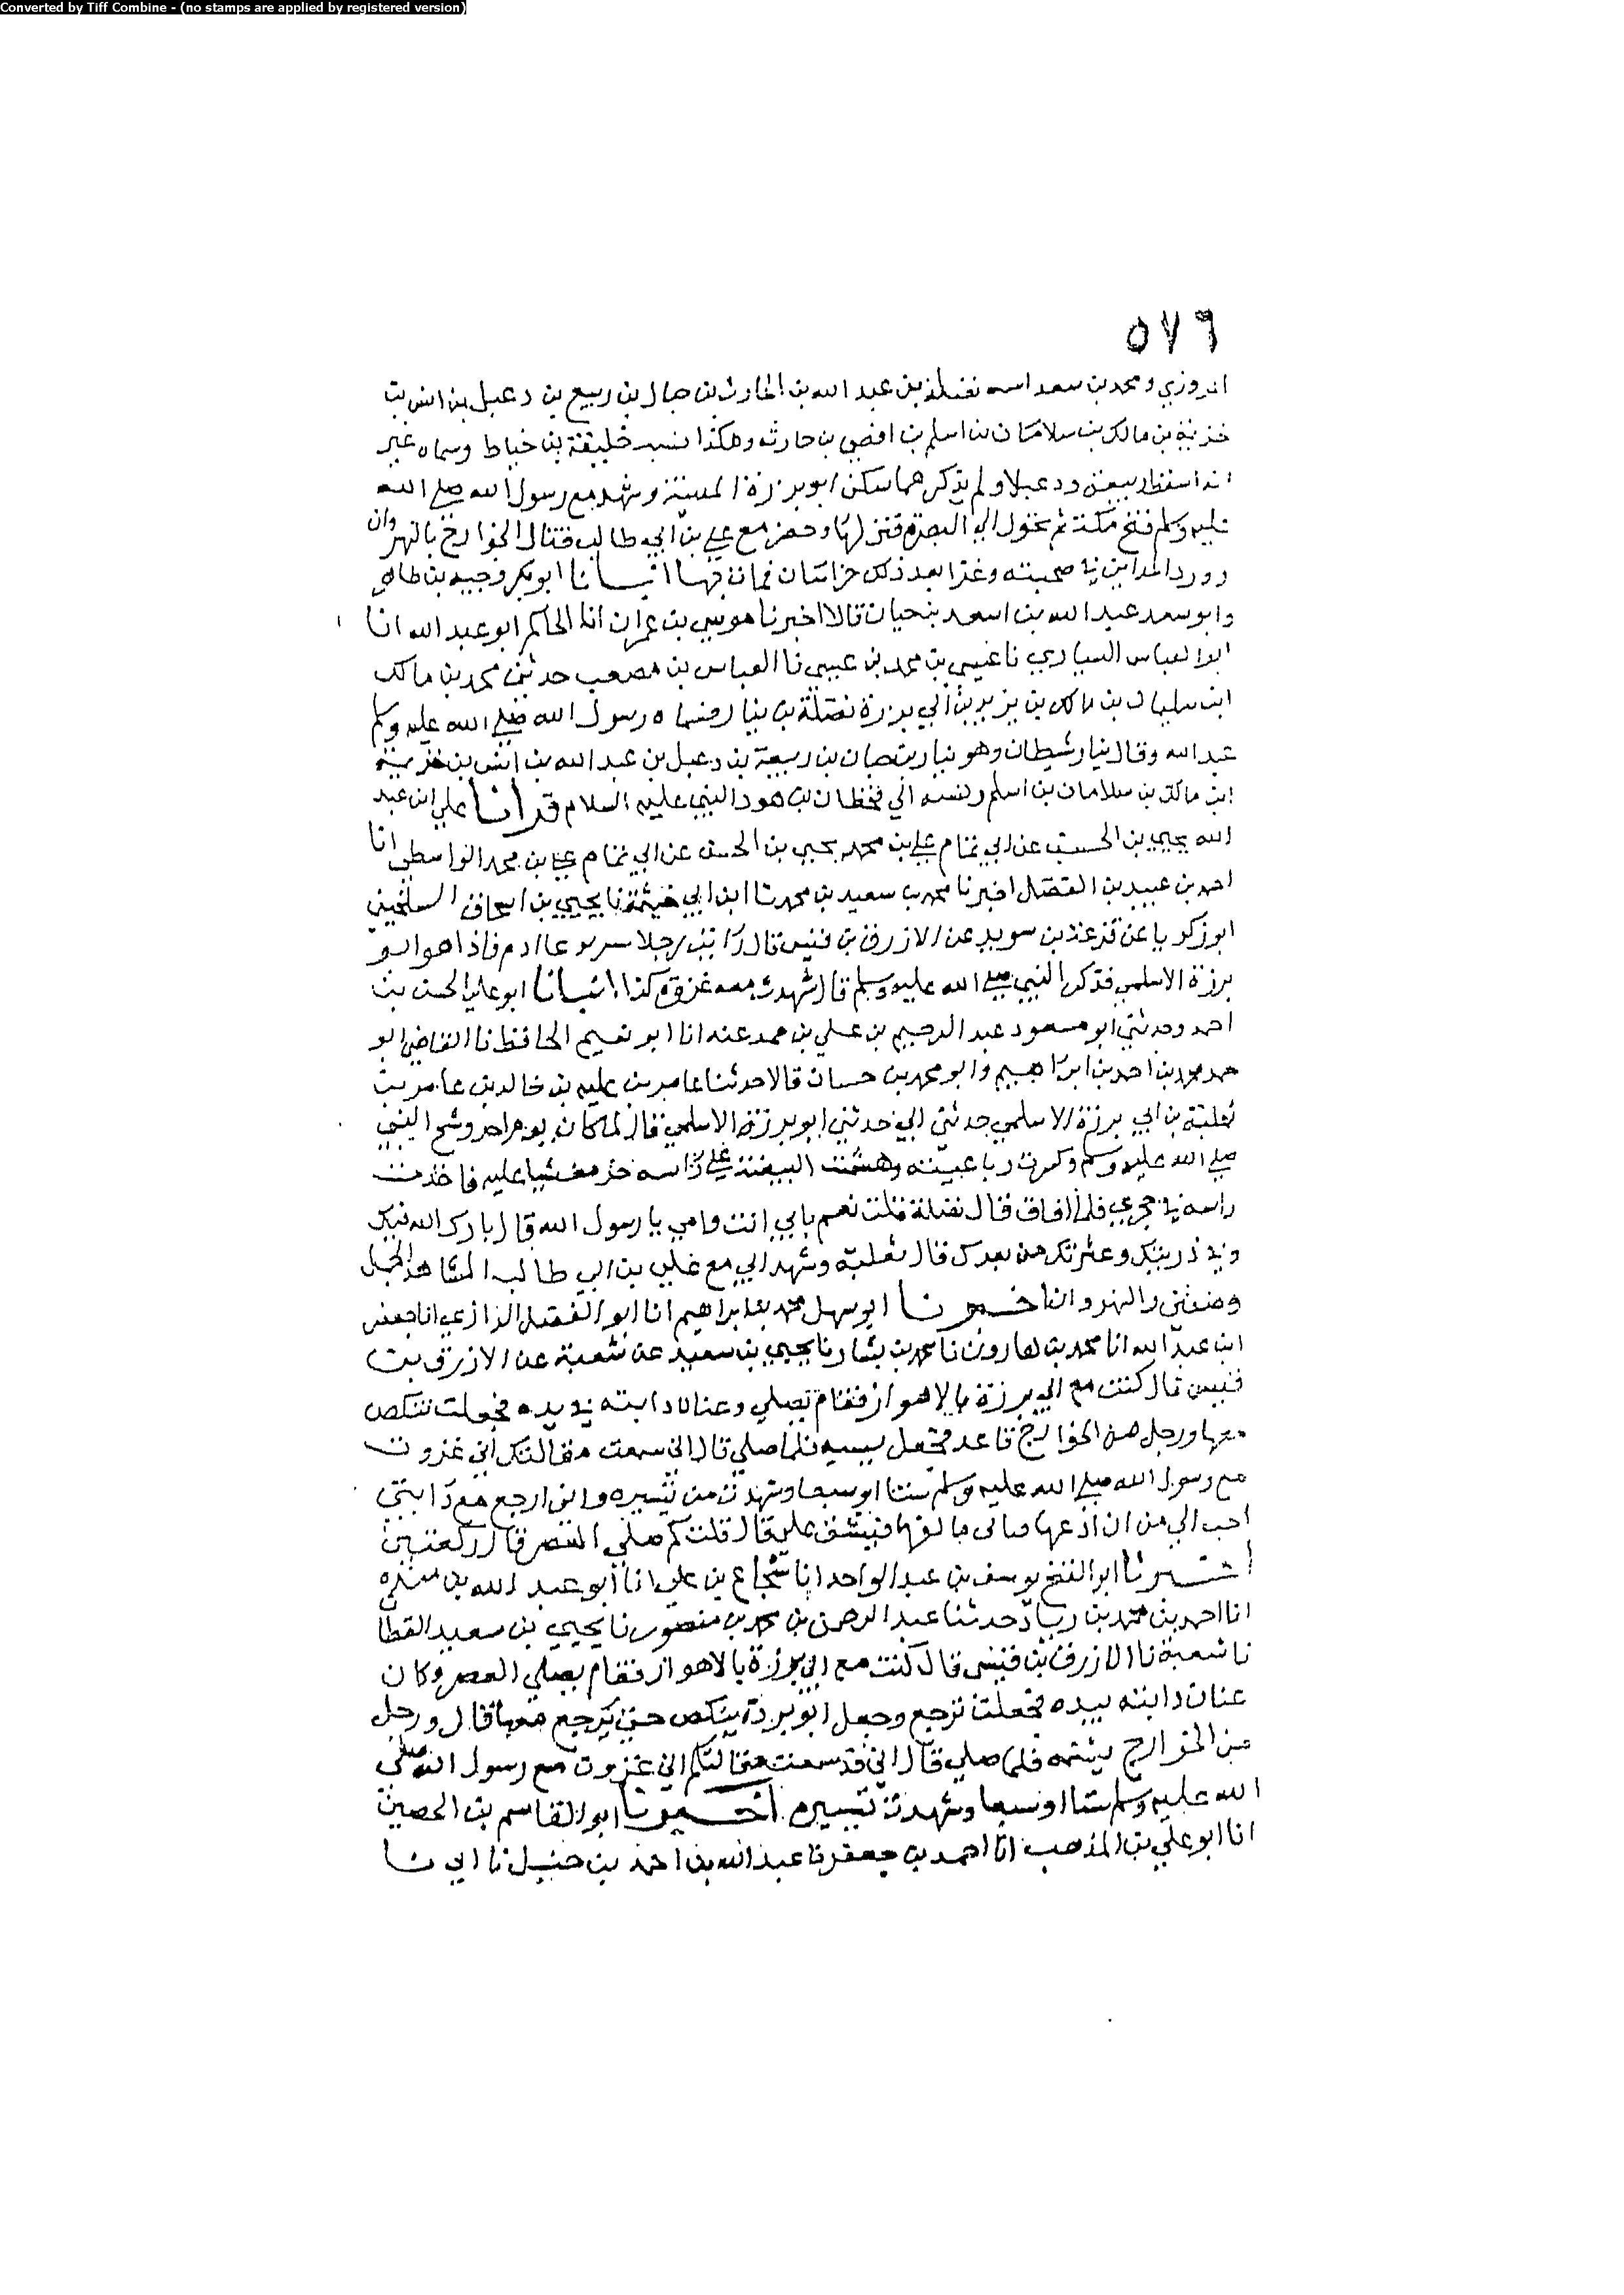 Converted by Tiff Combine - (no stamps are applied by registered version)
٥٧٦
ومحمد بن سعد اسمه نضلة بن عبد الله بن الحارث بن حبال بن ربيع بن دعبل بن انس بن
خزيمة بن مالك بن سلامان بن اسلم بن افصى بن حارثه وهكذا نسبه خليفة بن خياط وسماه غير
انه اسقط ربيعة ودعبلا ولم يذكرهما سكن ابو برزة المدينة وشهد مع رسول الله صلى الله
عليه وسلم فتح مكة ثم تحول الى البصرة فنزلها وحضر مع علي بن ابي طالب قتال الخوارج بالنهروان
وورد المداين في صحبته وغزا بعد ذلك خراسان فمات بها انبانا ابو بكر وجيه بن طاهر
وابو سعد عبد الله بن اسعد بن حيان قالا اخبرنا موسى بن عمران انا الحاكم ابو عبد الله انا
ابو العباس السياري نا عيسى بن محمد بن عيسى نا العباس بن مصعب حدثني محمد بن مالك
ابن سليمان بن مالك بن يزيد بن ابي برزة نضلة بن نيار وسماه رسول الله صلى الله عليه وسلم
عبد الله وقال نيار شيطان وهو نيار بن حبان بن ربيعة بن دعبل بن عبد الله بن انس بن خزيمة
ابن مالك بن سلامان بن اسلم ونسبه الى قحطان بن هود النبي عليه السلام قرانا على ابن عبد
الله يحيى بن الحسن عن ابي تمام علي بن محمد يحيى بن الحسن عن ابي تمام علي بن محمد الواسطي انا
احمد بن عبيد بن الفضل اخبرنا محمد بن سعيد بن محمد نا ابن ابي خيثمة نا يحيى بن اسحاق السلحيني
ابو زكريا عن قزعة بن سويد عن الازرق بن قيس قال رايت رجلا ادم فاذا هو ابو
برزة الاسلمي فذكر النبي صلى الله عليه وسلم قال شهدت معه غزوة كذا انبانا ابو علي الحسن بن
احمد وحدثني ابو مسعود عبد الرحيم بن علي بن محمد عنه انا ابو نعيم الحافظ نا القاضي ابو
محمد بن احمد بن ابراهيم وابو محمد بن حسان قالا حدثنا عامر بن عليه بن خالد بن عامر بن
ثعلبة بن ابي برزة الاسلمي حدثني ابي حدثني ابو برزة الاسلمي قال لما كان يوم احد وشج النبي
صلى الله عليه وسلم وكسرت رباعيته وهشمت البيضة على راسه خر مغشيا عليه فاخذت
راسه في حجري فلما افاق قال نضلة قلت نعم بابي انت وامي يا رسول الله قال بارك الله فيك
وفي ذريتك وعترتك من بعدك قال ثعلبة وشهد ابي مع علي بن ابي طالب المشاهد الجمل
وصفين والنهروان اخبرنا ابو سهل محمد بن ابراهيم انا ابو الفضل الرازي انا جعفر
ابن عبد الله انا محمد بن هارون نا محمد بن بشار نا يحيى بن سعيد عن شعبة عن الازرق بن
قيس قال كنت مع ابي برزة بالاهواز فقام يصلي وعنان دابته في يده فجعلت تنكص
معها ورجل من الخوارج قاعد فجعل يسبه فلما صلى قال اني سمعت مقالتك اني غزوت
مع رسول الله صلى الله عليه وسلم ستا او سبعا وشهدت من تيسيره واني ارجع مع دابتي
احب الي من ان ادعها فيشق علي قال قلت كم صلى العصر قال ركعتين
اخبرنا ابو الفتح يوسف بن عبد الواحد انا شجاع بن علي انا ابو عبد الله بن منده
انا احمد بن محمد بن زياد حدثنا عبد الرحمن بن محمد بن منصور نا يحيى بن سعيد القطان
نا شعبة نا الازرق بن قيس قال كنت مع ابي برزة بالاهواز فقام يصلي العصر وكان
عنان دابته بيده فجعلت ترجع وجعل ابو برزة ينكص حتى يرجع معها قال ورجل
من الخوارج يشتمه فلما صلى قال اني قد سمعت مقالتكم اني غزوت مع رسول الله صلى
الله عليه وسلم ستا او سبعا وشهدت تيسيره اخبرنا ابو القاسم بن الحصين
انا ابو علي بن المذهب انا احمد بن جعفر نا عبد الله بن احمد بن حنبل نا ابي نا